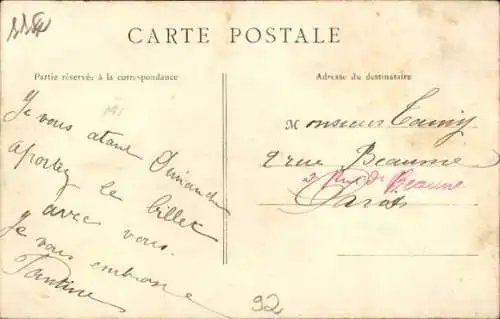 CARTE POSTALE
Partie réservée à la correspondance
Adresse du destinataire
Je vous atane Dimanche
aportez le billet
avec vous.
je vous embrasse
Monsieur
2 rue Beaume
2 Rue de Beaune
Paris
92